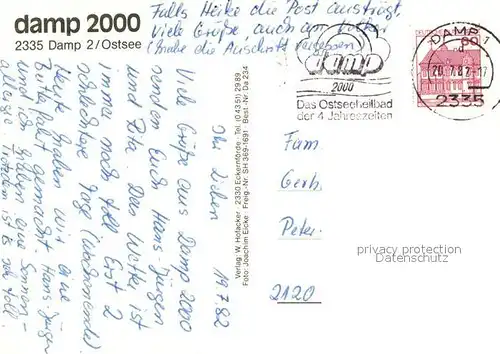 damp 2000
2335 Damp 2/Ostsee
Falls Heike die Post austrägt,
viele Grüße, auch an Volker
(habe die Anschrift vergessen)
DAMP
20.7.82-17
2335
damp
2000
Das Ostseeheilbad
der 4 Jahreszeiten
60
Verlag: W. Hofacker · 2330 Eckernförde · Tel. (0 43 51) 29 89
Foto: Joachim Eicke · Freig.-Nr. SH 369-1691 · Best.-Nr. Da 234
19.7.82
Ihr Lieben
Viele Grüße aus Damp 2000
senden Euch Hans-Jürgen
und Rita. Das Wetter ist
immer noch toll. Erst 2
wolkige Tage (Wochenende).
Heute haben wir eine
gemacht. Hans-Jürgen
und ich haben eine Sonnen-
allergie. Trotzdem ist es sehr toll.
Fam
Gerh.
Peter
2120
privacy protection